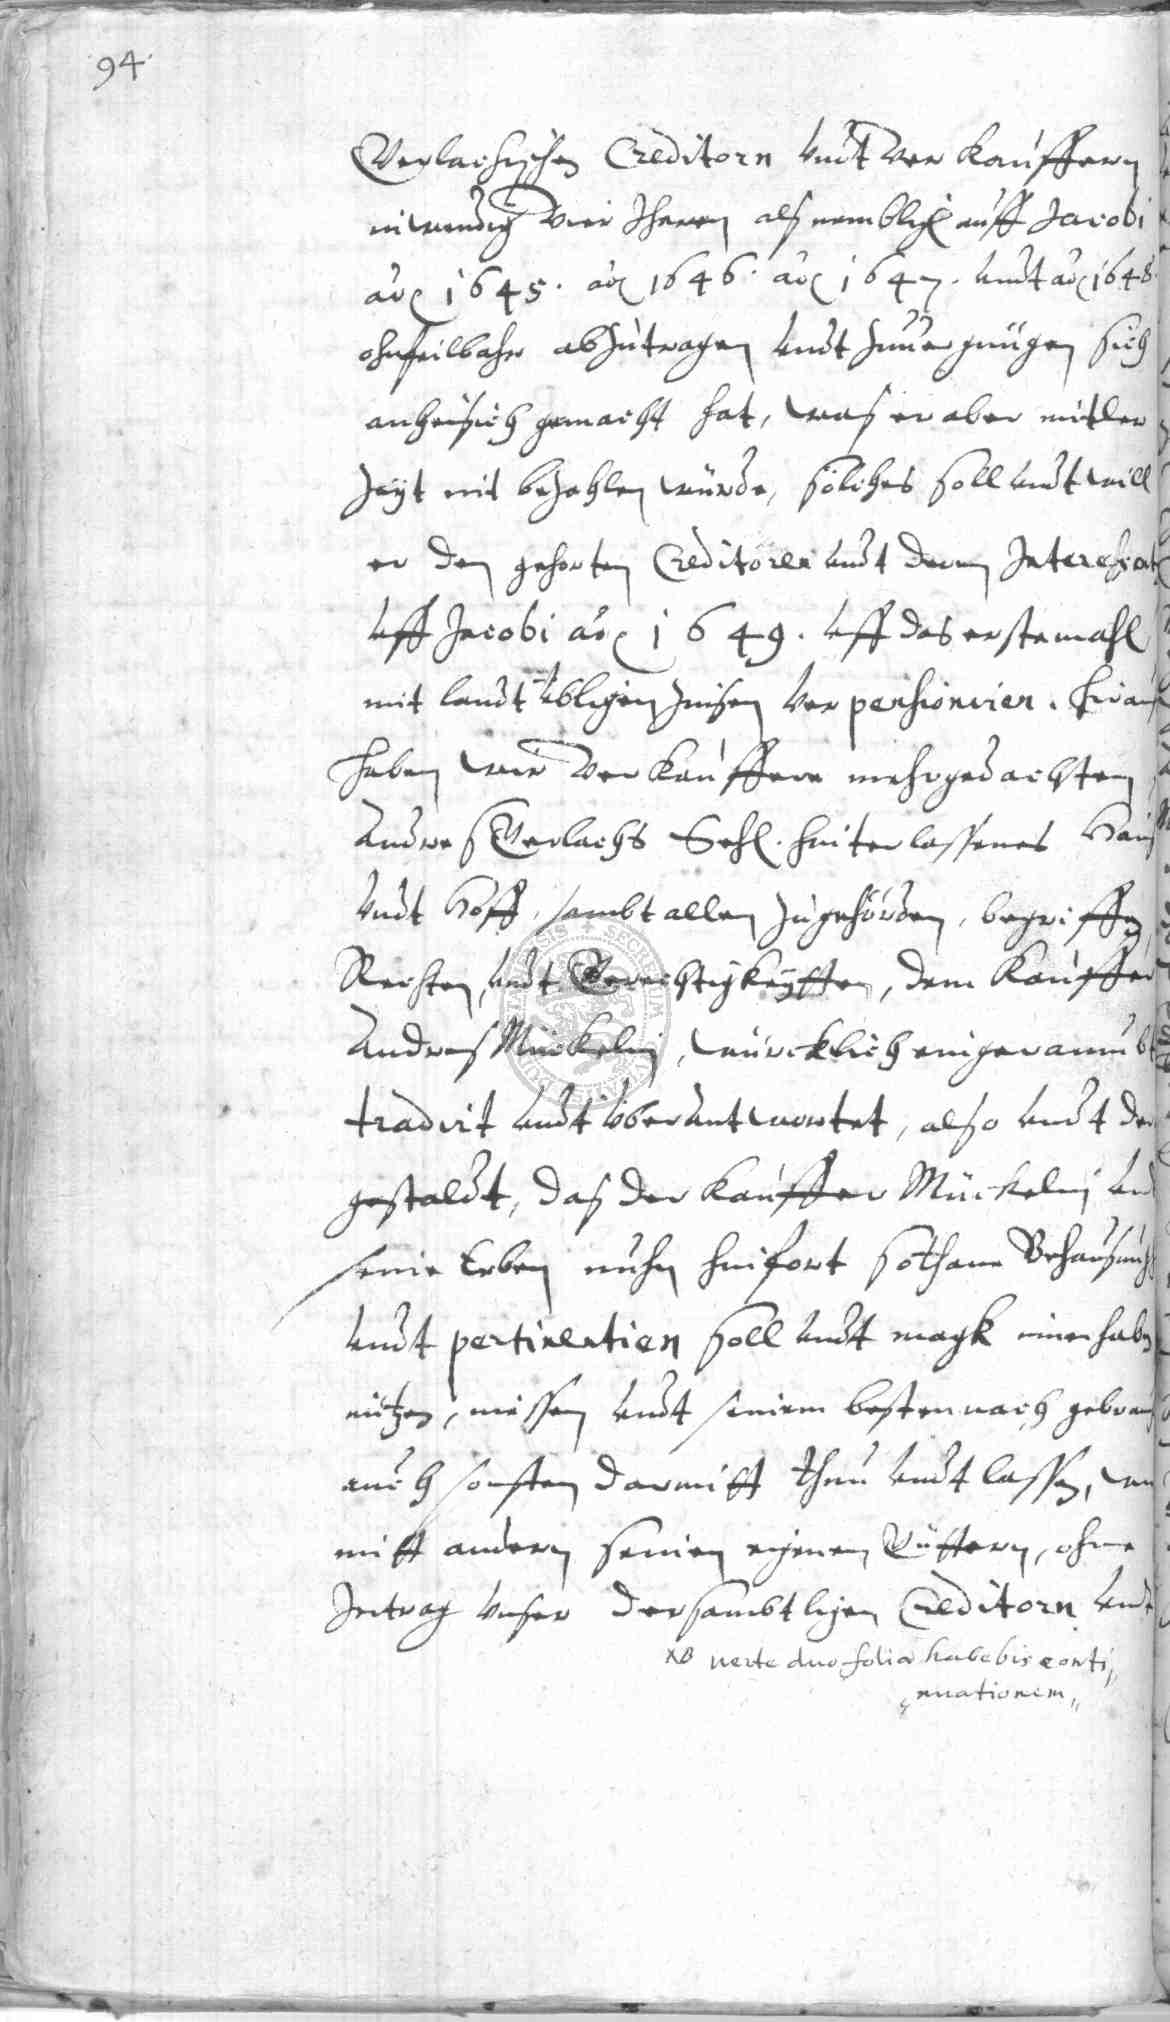 94.
Gerlachischen Creditorn undt Verkauffern
inwendig Vier Jharen als nemblich auff Jacobi
aõ 1645. aõ 1646. aõ 1647. undt aõ 1648
ohnfeilbahr abzutragen undt zuuergnügen sich
anheisich gemacht hat, was er aber mitler
Zeyt nit bezahlen würde, solches soll undt will
er den gehorten Creditoren undt deren
uff Jacobi aõ 1649. uff das erstemahl
mit landtübligen Zinsen verpensionirn.
haben wir Verkauffere mehrgedachten
Andres Gerlachs Sehl. hinterlassenes Hauß
undt Hoff, sambt allen Zugehörden, begriffen,
Rechten, undt Gerechtigkeytten, dem Kauffer
Andres Mückelin, würcklich eingeraumbt
tradirt undt überantwortet, also undt der
gestaldt, das der Kauffer Mückelin
seine Erben nuhn hinfort sothane Behausung
undt pertinentien soll undt magk innenhaben
nützen, niessen undt seinem besten nach
auch sonsten darmitt thun undt lassen,
mitt andern seinen eigenen Güttern, ohne
Intrag unser dersambtligen Creditorn undt
NB verte duo folia habebis conti„
„nuationem„
SIS SECUR